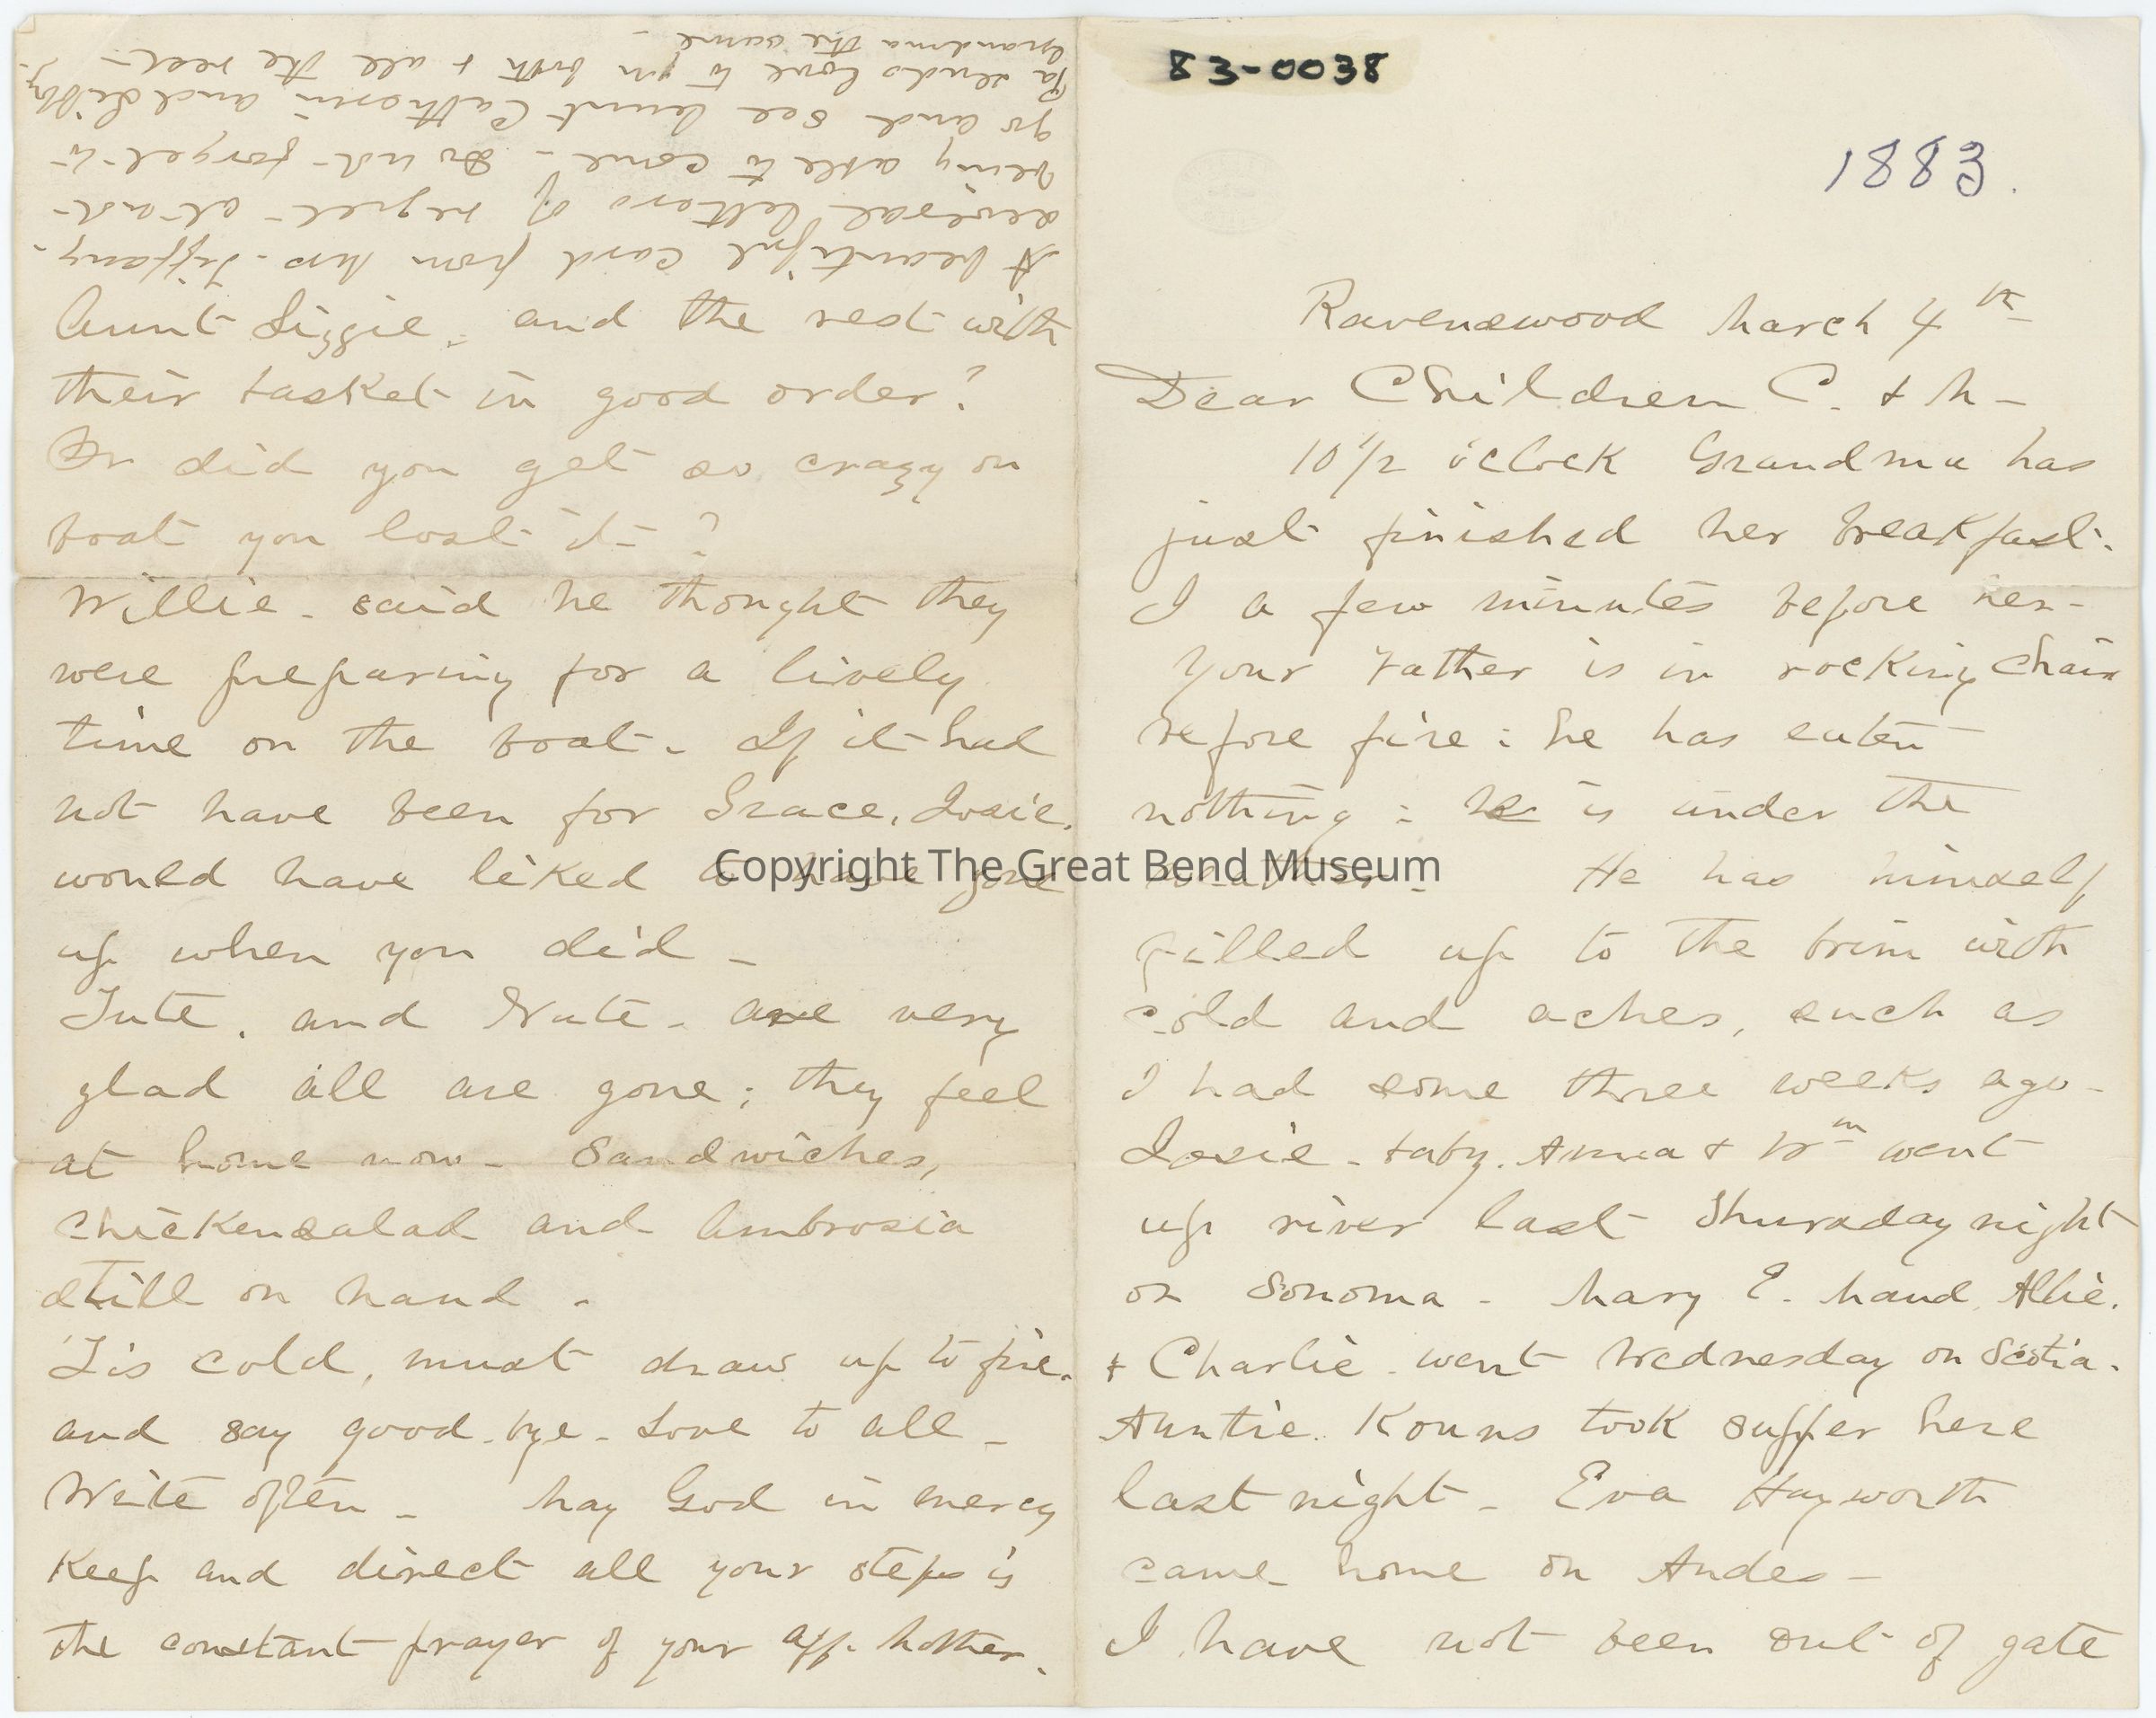 83-0038
1883.
Ravenswood March 4th
Dear Children C. & M -
10 1/2 o'clock Grandma has
just finished her breakfast.
I a few minutes before her -
Your Father is in rocking chair
before fire: he has eaten
nothing: he is under the
weather - He has himself
filled up to the brim with
cold and aches, such as
I had some three weeks ago -
Josie - baby. Anna & Wm went
up river last Thursday night
on Sonoma - Mary E. Maud, Allie.
& Charlie - went Wednesday on Scotia.
Auntie. Kouns took supper here
last night - Eva Hayworth
came home on Andes -
I have not been out of gate
Aunt Lizzie, and the rest with
their basket in good order?
Or did you get so crazy on
boat you lost it - ?
Willie - said he thought they
were preparing for a lively
time on the boat - If it had
not have been for Grace, Josie.
would have liked to have gone
up when you did -
Tute, and Nate - are very
glad all are gone; they feel
at home now - Sandwiches,
chickensalad and Ambrosia
still on hand -
'Tis cold, must draw up to fire.
and say good-bye - Love to all -
Write often - May God in mercy
Keep and direct all your steps is
the constant prayer of your aff. Mother.
A beautiful card from Mrs. Tiffany -
several letters of regret at not
being able to come - Do not forget to
go and see Aunt Catharin and Libby.
Pa sends love to you both & all the rest -
Grandma the same -
Copyright The Great Bend Museum